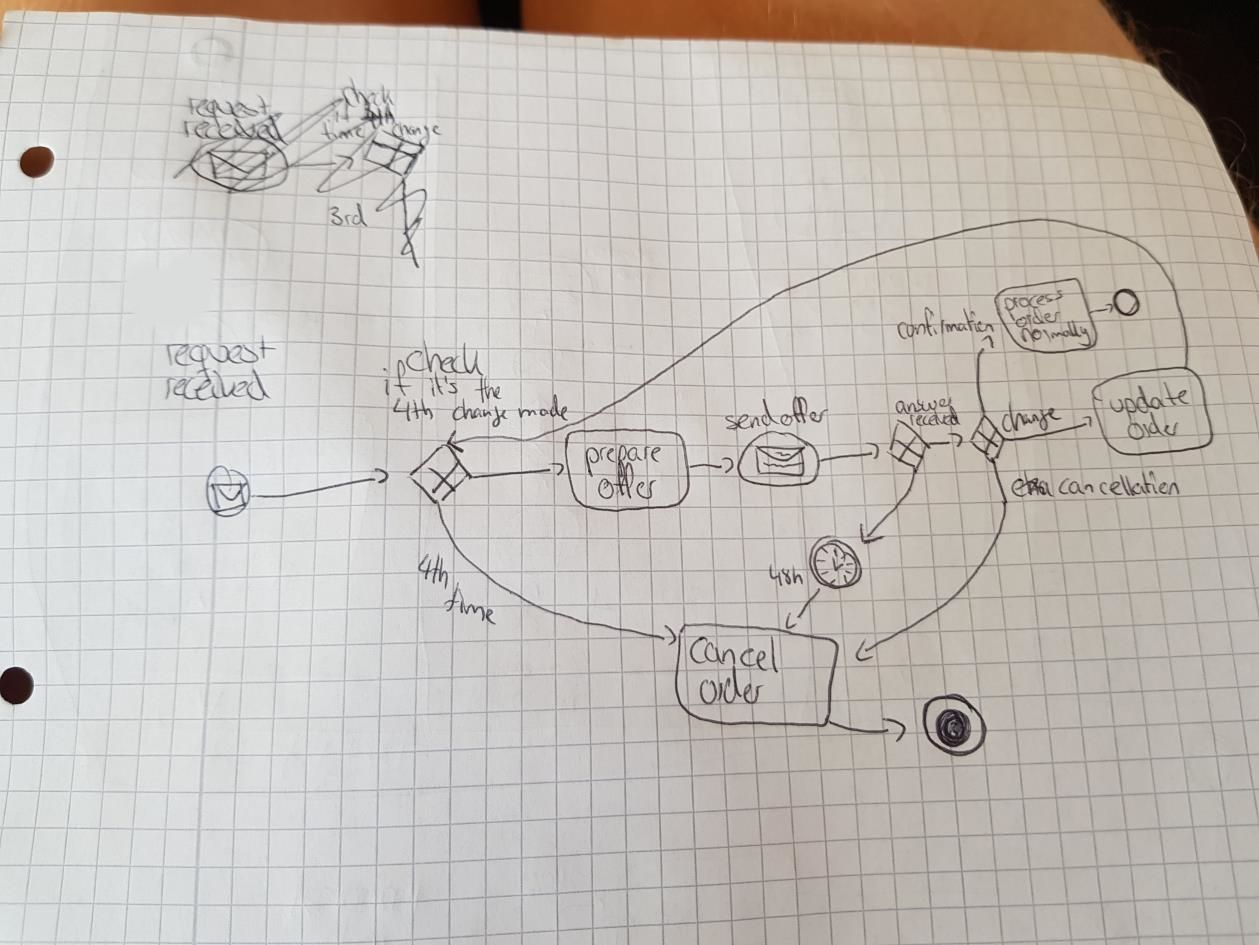 request
received
check
if
4th
time change
3rd
request
received
check
if it's the
4th change made
prepare
offer
send offer
answer
received
confirmation
process
order
normally
change
update
order
cancellation
48h
4th
time
cancel
order